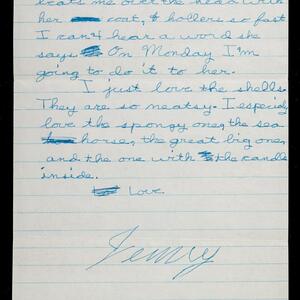 me over the head with
her coat, & hollers so fast
I can't hear a word she
says. On Monday I'm
going to do it to her.
I just love the shells.
They are so meatsy. I especidy
love the spongy ones, the sea
horse, the great big one,
and the one with the candle
inside.
Love